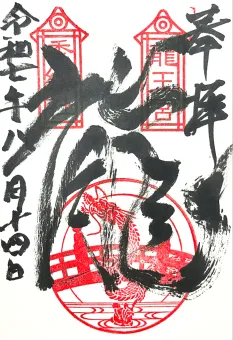 奉拝
龍王宮
龍
令和七年八月十四日